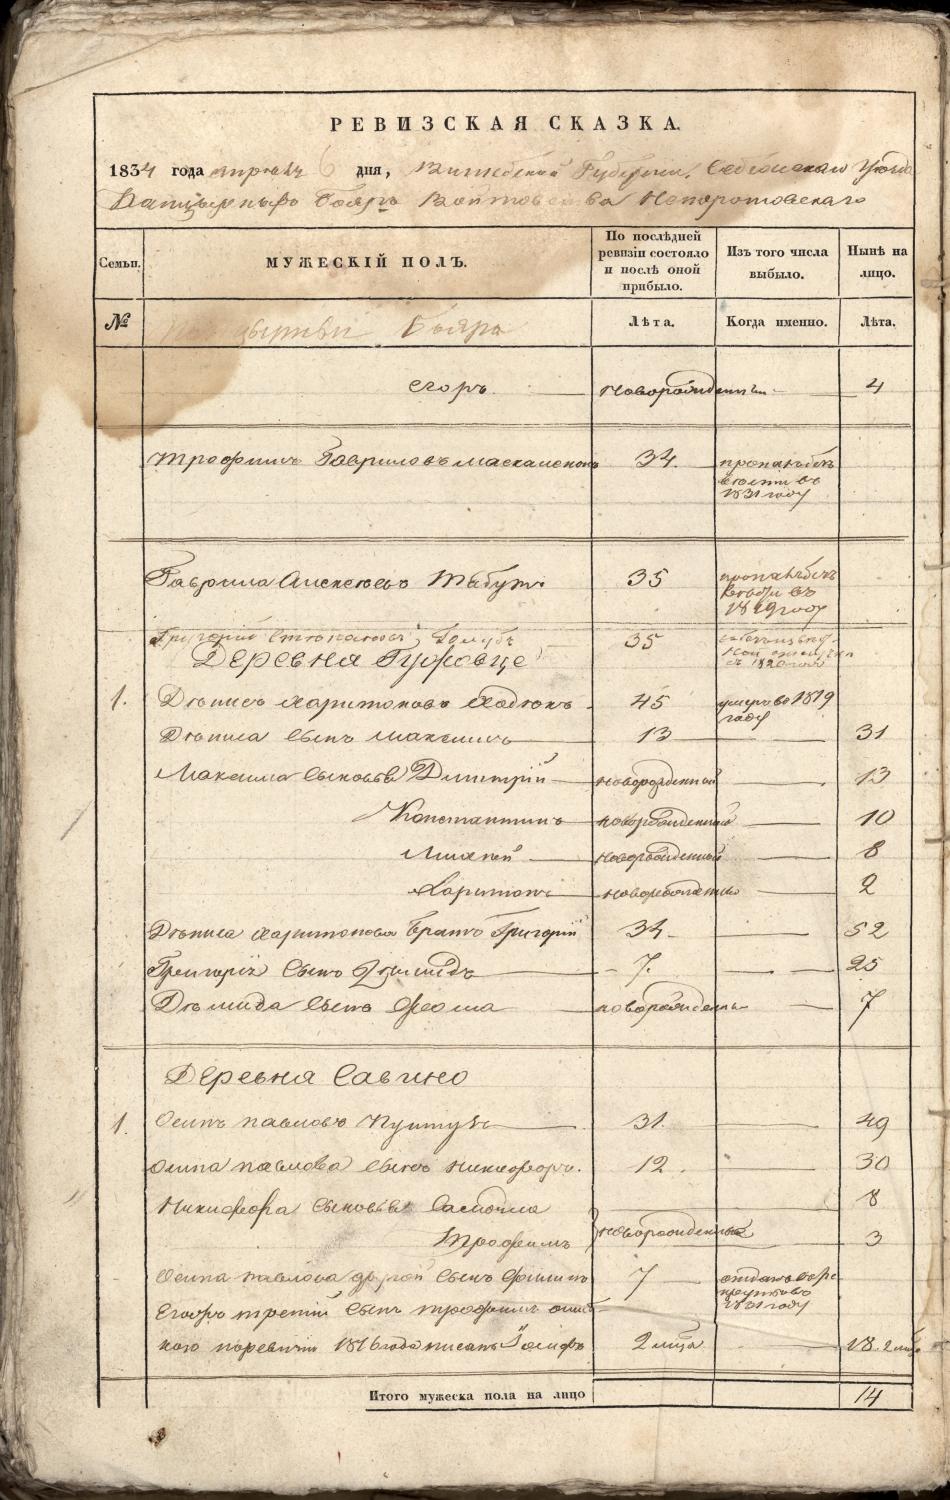 РЕВИЗСКАЯ СКАЗКА.
1834 года апреля 6 дня, Витебской Губернии, Себежскаго Уезда
Панцырныхъ Бояръ Войтовства Непоротовскаго
Семьи.
МУЖЕСКІЙ ПОЛЪ.
По послѣдней ревизіи состояло и послѣ оной прибыло.
Изъ того числа выбыло.
Нынѣ на лицо.
№
Бояра
Лѣта.
Когда именно.
Лѣта.
Егоръ новорожденный 4
Трофимъ Гавриловъ 34. 1831 году
Гаврила Алексеевъ 35 1829 году
Григорій Голубъ 35 1820
Деревня
1. Денисъ Харитоновъ 45 умеръ во 1819 году
Дениса сынъ Максимъ 13 31
Максима сыновья Димитрій новорожденный 13
Константинъ новорожденный 10
Михей новорожденный 8
Харитонъ 2
Дениса Харитонова братъ Григорій 34 52
Григорія сынъ Демидъ 7. 25
Демида сынъ Фома новорожденны 7
Деревня Савино
1. Осипъ Павловъ 31. 49
Осипа Павлова сынъ Никифоръ. 12. 30
Никифора сыновья Самойла 8
Трофимъ новорожденные 3
Осипа Павлова другой сынъ Филипъ 7 отданъ въ рекруты во 1831 году
Егожъ третій сынъ Трофимъ
по ревизіи 1816 года писанъ 2 мца 18. 2 мца
Итого мужеска пола на лицо 14